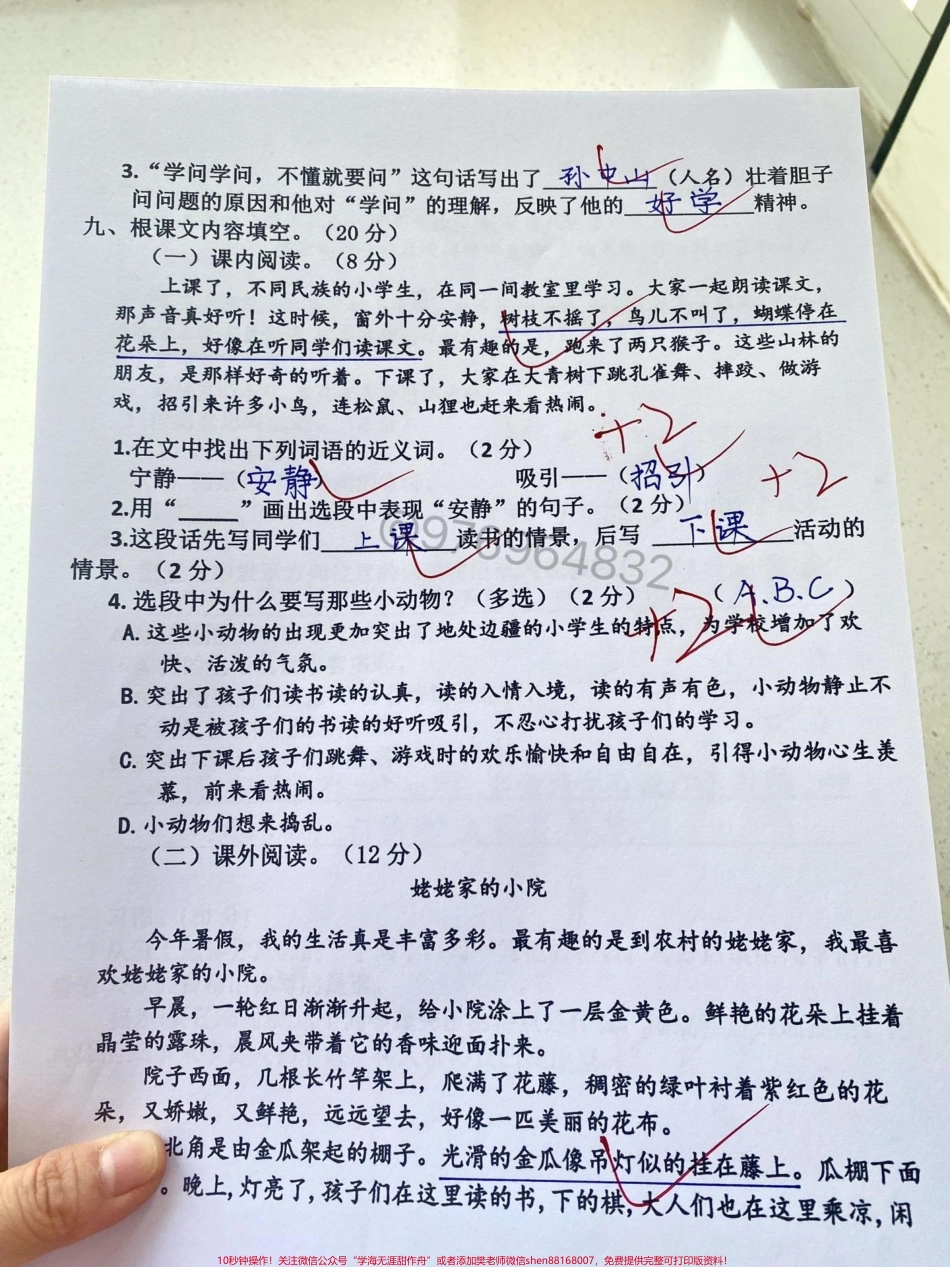 3.“学问学问，不懂就要问”这句话写出了 孙中山 （人名）壮着胆子
问问题的原因和他对“学问”的理解，反映了他的 好学 精神。
九、根课文内容填空。（20分）
（一）课内阅读。（8分）
上课了，不同民族的小学生，在同一间教室里学习。大家一起朗读课文，
那声音真好听！这时候，窗外十分安静，树枝不摇了，鸟儿不叫了，蝴蝶停在
花朵上，好像在听同学们读课文。最有趣的是，跑来了两只猴子。这些山林的
朋友，是那样好奇的听着。下课了，大家在大青树下跳孔雀舞、摔跤、做游
戏，招引来许多小鸟，连松鼠、山狸也赶来看热闹。
+2
1.在文中找出下列词语的近义词。（2分）
宁静——（安静） 吸引——（招引） +2
2.用“____”画出选段中表现“安静”的句子。（2分）
@976964832
3.这段话先写同学们 上课 读书的情景，后写 下课 活动的
情景。（2分）
4. 选段中为什么要写那些小动物？（多选）（2分） （A、B、C）
+2
A. 这些小动物的出现更加突出了地处边疆的小学生的特点，为学校增加了欢
快、活泼的气氛。
B. 突出了孩子们读书读的认真，读的入情入境，读的有声有色，小动物静止不
动是被孩子们的书读的好听吸引，不忍心打扰孩子们的学习。
C. 突出下课后孩子们跳舞、游戏时的欢乐愉快和自由自在，引得小动物心生羡
慕，前来看热闹。
D. 小动物们想来捣乱。
（二）课外阅读。（12分）
姥姥家的小院
今年暑假，我的生活真是丰富多彩。最有趣的是到农村的姥姥家，我最喜
欢姥姥家的小院。
早晨，一轮红日渐渐升起，给小院涂上了一层金黄色。鲜艳的花朵上挂着
晶莹的露珠，晨风夹带着它的香味迎面扑来。
院子西面，几根长竹竿架上，爬满了花藤，稠密的绿叶衬着紫红色的花
朵，又娇嫩，又鲜艳，远远望去，好像一匹美丽的花布。
北角是由金瓜架起的棚子。光滑的金瓜像吊灯似的挂在藤上。瓜棚下面
。晚上，灯亮了，孩子们在这里读的书，下的棋，大人们也在这里乘凉，闲
10秒钟操作！关注微信公众号“学海无涯甜作舟”或者添加樊老师微信shen88168007，免费提供完整可打印版资料！